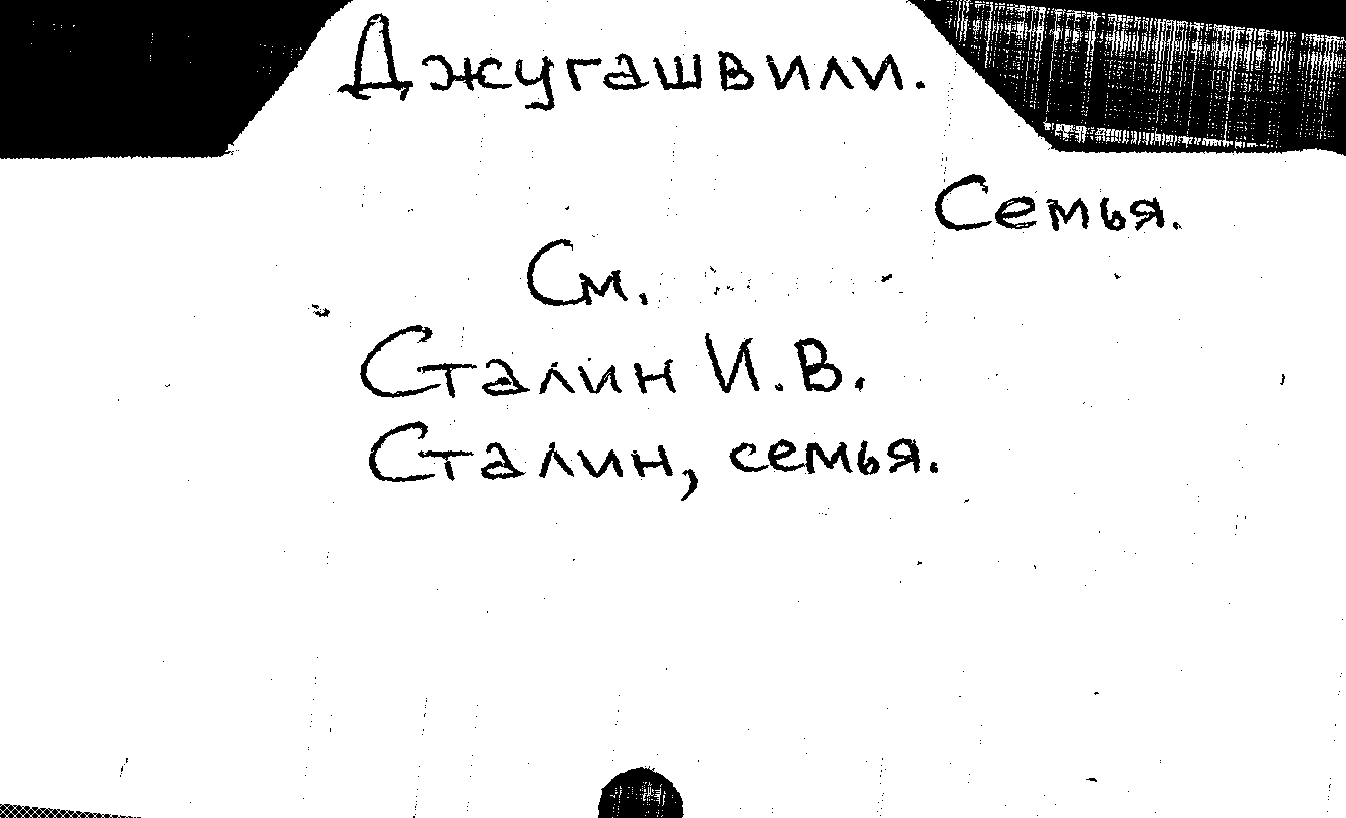 Джугашвили.
Семья.
См.
Сталин И.В.
Сталин, семья.